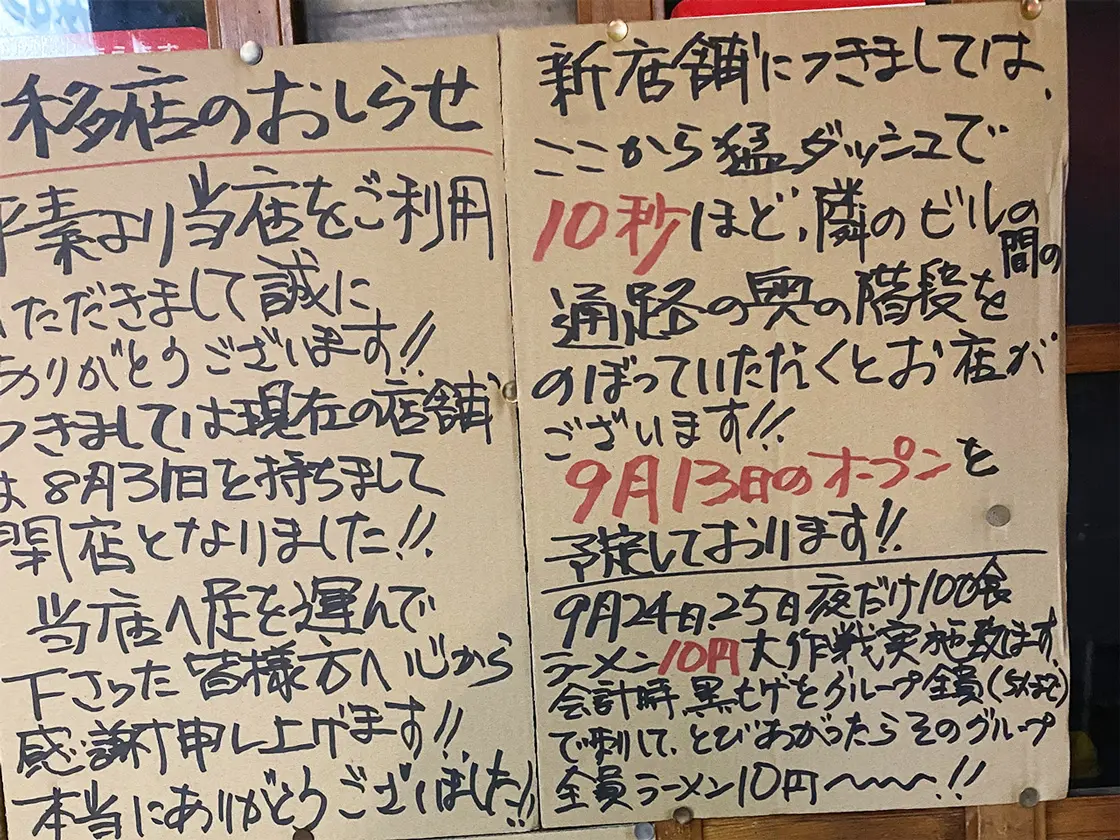 移店のおしらせ
平素より当店をご利用
いただきまして誠に
ありがとうございます!!
つきましては現在の店舗
は8月31日を持ちまして
閉店となりました!!
当店へ足を運んで
下さった皆様方へ心から
感謝申し上げます!!
本当にありがとうございました!!
新店舗につきましては、
ここから猛ダッシュで
10秒ほど、隣のビルの
間の
通路の奥の階段を
のぼっていただくとお店が
ございます!!
9月13日のオープンを
予定しております!!
9月24日、25日夜だけ100食
ラーメン10円大作戦実施致します。
会計時黒ヒゲをグループ全員(5人まで)
で刺して、とびあがったらそのグループ
全員ラーメン10円〜〜〜!!